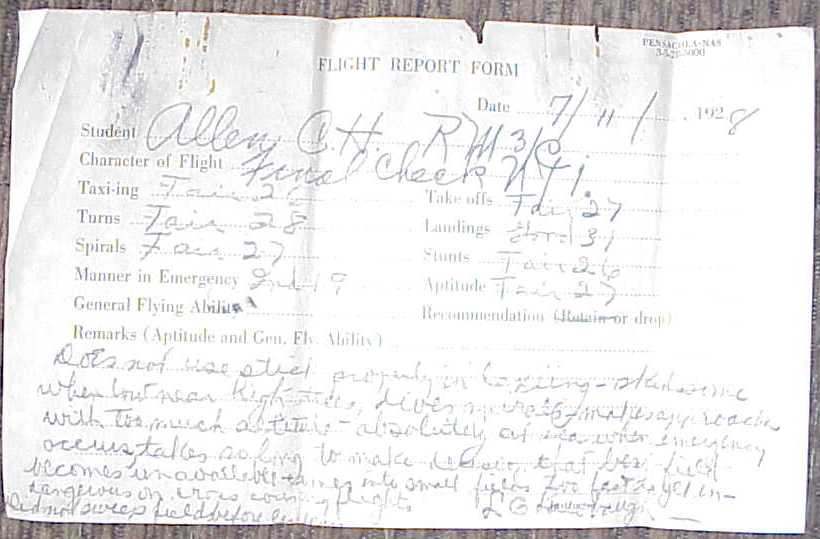 PENSACOLA-NAS
FLIGHT REPORT FORM
Date 7/11/, 1928
Student Allen, C.H. RM 3/C
Character of Flight Final Check
Taxi-ing Fair 26 Take offs Fair 27
Turns Fair 28 Landings Good 31
Spirals Fair 27 Stunts Fair 26
Manner in Emergency 19
General Flying Ability Aptitude Fair 27
Recommendation (Retain or drop)
Remarks (Aptitude and Gen. Fly. Ability)
Does not use stick properly in taxiing - skids some
when low near high trees, dives in - makes approaches
with too much altitude - absolutely at sea when emergency
occurs, takes so long to make decision that best field
becomes unavailable - comes into small fields too fast
dangerous on cross country flight.
Did not sweep field before